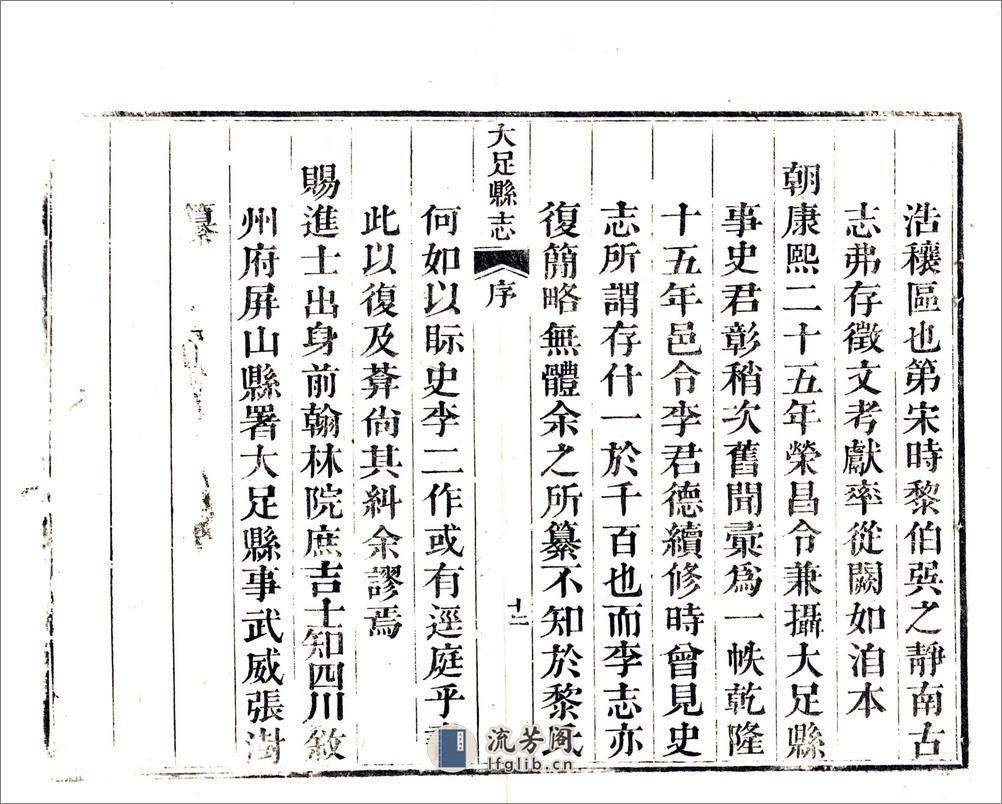 浩穰區也第宋時黎伯巽之靜南古
志弗存徵文考獻率從闕如洎本
朝康熙二十五年榮昌令兼攝大足縣
事史君彰稍次舊聞彚爲一帙乾隆
十五年邑令李君德續修時曾見史
志所謂存什一於千百也而李志亦
復簡略無體余之所纂不知於黎氏
大足縣志
序
十二
何如以眎史李二作或有逕庭乎
此以復及葊尙其糾余謬焉
賜進士出身前翰林院庶吉士知四川敘
州府屏山縣署大足縣事武威張澍
纂
流芳阁
lfglib.cn